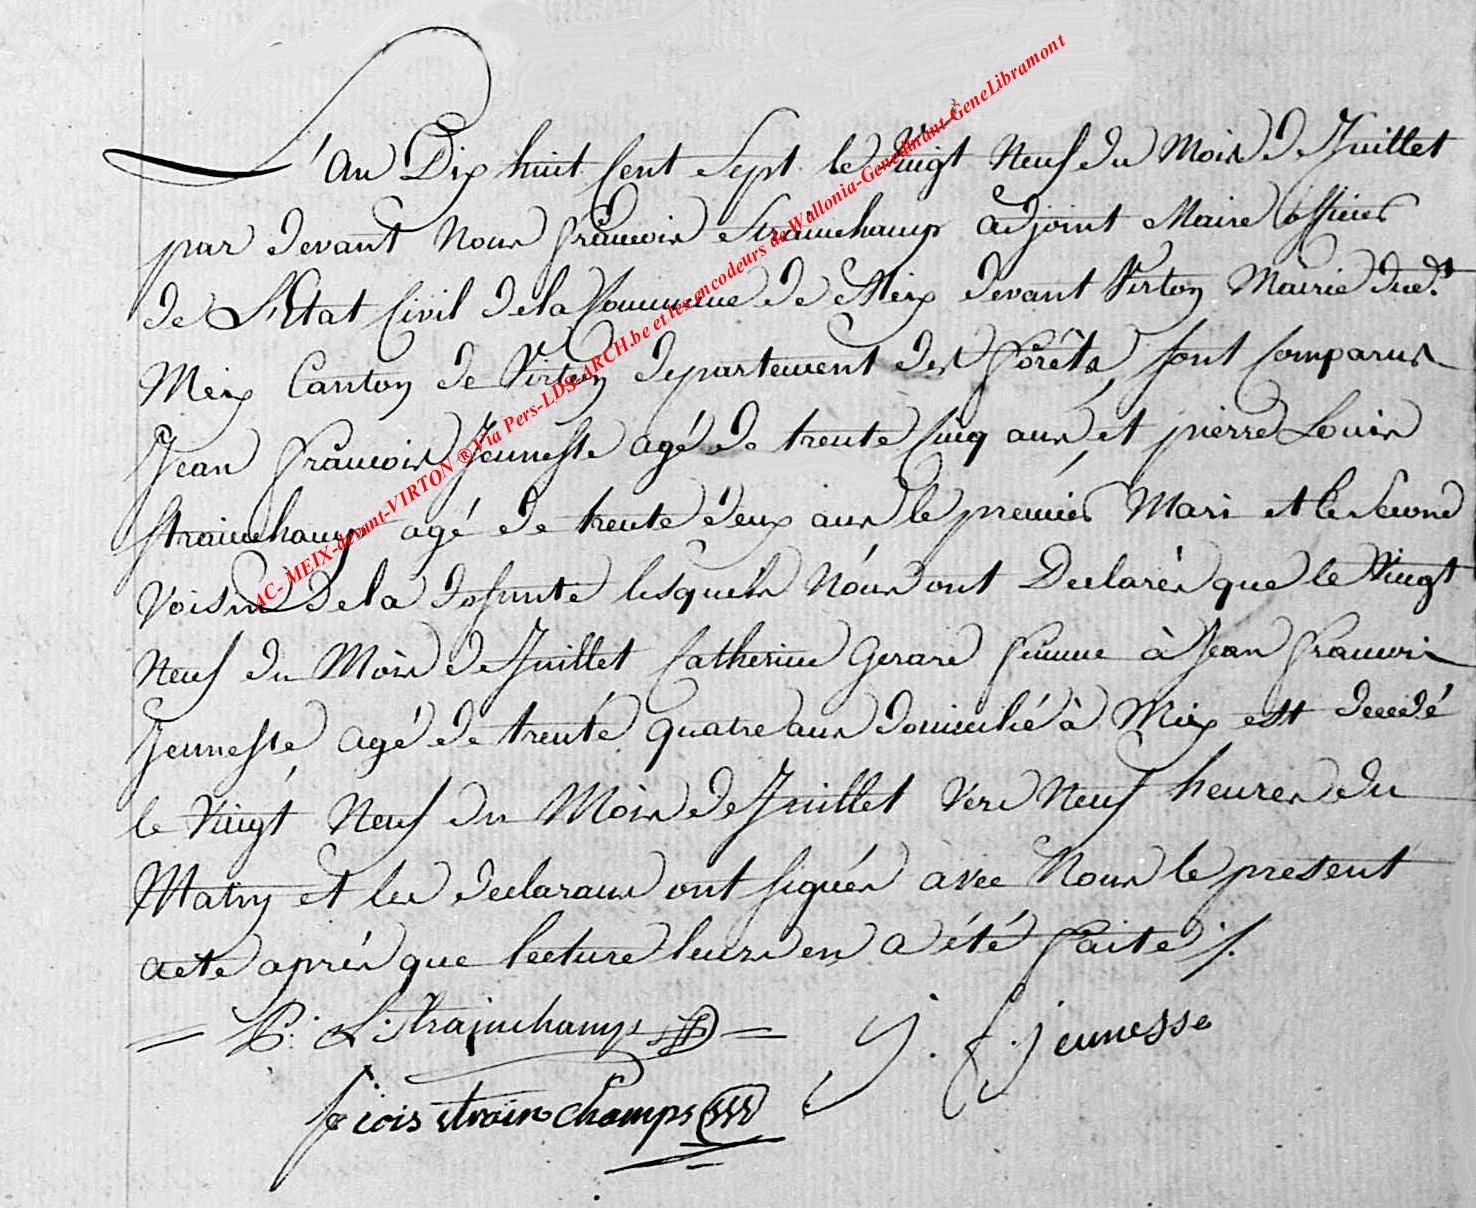 L'an Dix huit Cent Sept le vingt Neuf du Mois De Juillet
par devant Nous françois Strainchamps adjoint Maire officier
de L'Etat Civil de la Commune de Meix devant Virton Mairie dud.t
Meix Canton de Virton departement des forêts, sont comparus
Jean françois Jeunesse agé de trente Cinq ans, et pierre Louis
Strainchamps agé de trente deux ans le premier Mari et le Second
Voisin De la Defunte lesquels Nous ont Declarés que le Vingt
Neuf du Mois de Juillet Catherine Gerard femme à Jean françois
Jeunesse, agé de trente quatre ans domicilié à Meix est decedé
le Vingt Neuf du Mois de Juillet Vers Neuf heures du
Matin et les declarans ont signés avec Nous le present
acte après que lecture leurs en a été faite ./.
P: L: Strainchamps
J. f. jeunesse
fcois strainchamps
AC- MEIX-devant-VIRTON ® Via Pers-LDS-ARCH.be et les encodeurs de Wallonia-Genedinant-GeneLibramont